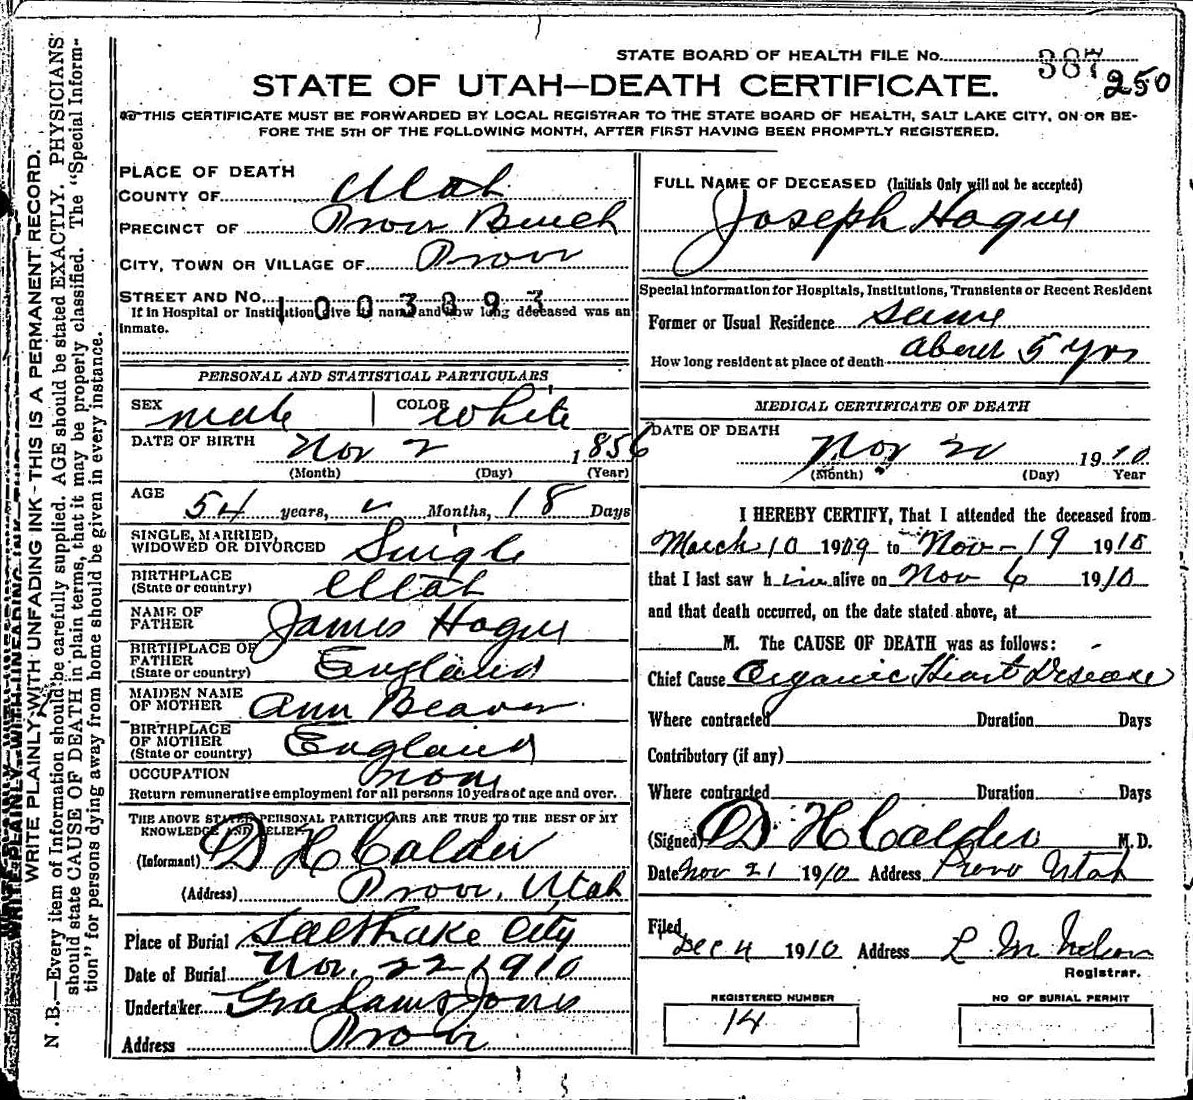 STATE BOARD OF HEALTH FILE No. 387 250
STATE OF UTAH—DEATH CERTIFICATE.
THIS CERTIFICATE MUST BE FORWARDED BY LOCAL REGISTRAR TO THE STATE BOARD OF HEALTH, SALT LAKE CITY, ON OR BE-
FORE THE 5TH OF THE FOLLOWING MONTH, AFTER FIRST HAVING BEEN PROMPTLY REGISTERED.
WRITE PLAINLY WITH UNFADING INK - THIS IS A PERMANENT RECORD.
N. B.—Every item of Information should be carefully supplied. AGE should be stated EXACTLY. PHYSICIANS
should state CAUSE OF DEATH in plain terms, that it may be properly classified. The "Special Inform-
tion" for persons dying away from home should be given in every instance.
PLACE OF DEATH
COUNTY OF Utah
PRECINCT OF Provo Bench
CITY, TOWN OR VILLAGE OF Provo
STREET AND No. 1003893
If in Hospital or Institution give its name and how long deceased was an
inmate.
PERSONAL AND STATISTICAL PARTICULARS
SEX male COLOR white
DATE OF BIRTH Nov 2 1856
(Month) (Day) (Year)
AGE 54 years, Months, 18 Days
SINGLE, MARRIED,
WIDOWED OR DIVORCED Single
BIRTHPLACE
(State or country) Utah
NAME OF
FATHER James Hogue
BIRTHPLACE OF
FATHER
(State or country) England
MAIDEN NAME
OF MOTHER Ann Beaver
BIRTHPLACE
OF MOTHER
(State or country) England
OCCUPATION None
Return remunerative employment for all persons 10 years of age and over.
THE ABOVE STATED PERSONAL PARTICULARS ARE TRUE TO THE BEST OF MY
KNOWLEDGE AND BELIEF
(Informant) D H Calder
(Address) Provo, Utah
Place of Burial Salt Lake City
Date of Burial Nov. 22 1910
Undertaker Jones
Address Provo
FULL NAME OF DECEASED (Initials Only will not be accepted)
Joseph Hogue
Special information for Hospitals, Institutions, Transients or Recent Resident
Former or Usual Residence same
How long resident at place of death about 5 yrs
MEDICAL CERTIFICATE OF DEATH
DATE OF DEATH Nov 20 1910
(Month) (Day) Year
I HEREBY CERTIFY, That I attended the deceased from
March 10 1909 to Nov - 19 1910
that I last saw him alive on Nov 6 1910
and that death occurred, on the date stated above, at
M. The CAUSE OF DEATH was as follows:
Chief Cause Organic Heart Disease
Where contracted Duration Days
Contributory (if any)
Where contracted Duration Days
(Signed) D H Calder M. D.
Date Nov 21 1910 Address Provo Utah
Filed Dec 4 1910 Address L. M. Nelson
Registrar.
REGISTERED NUMBER
14
NO OF BURIAL PERMIT